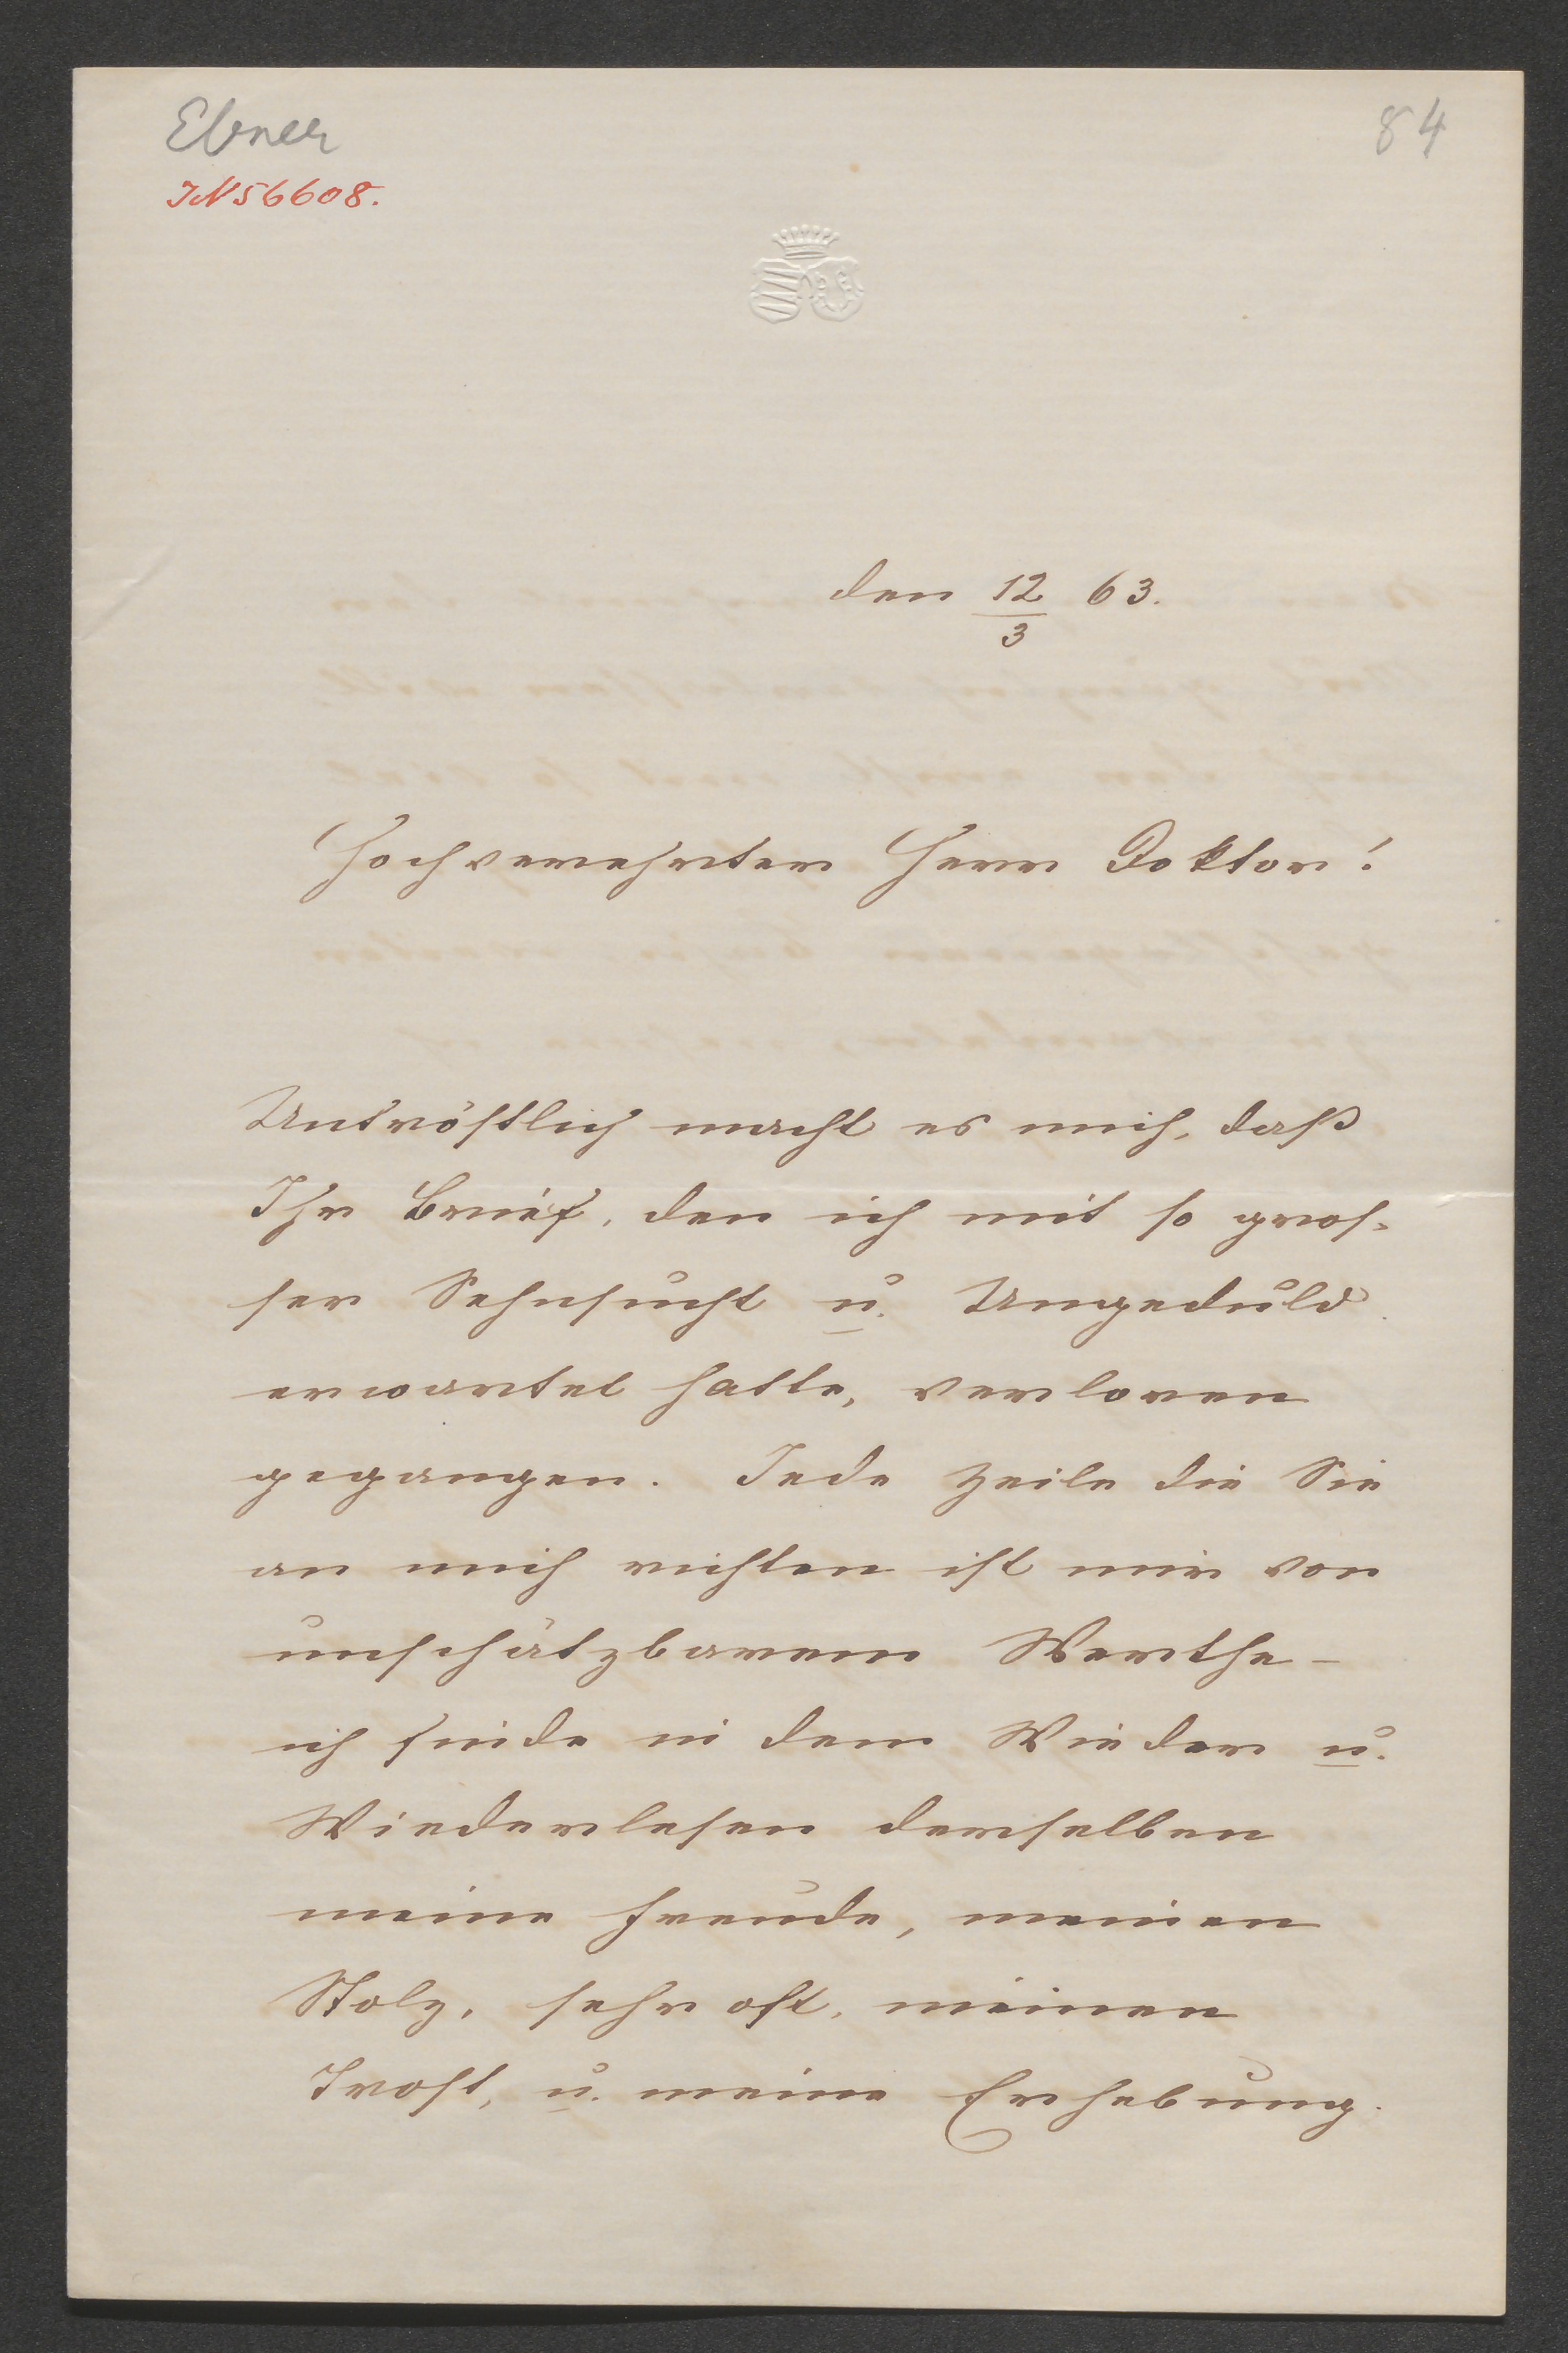 Ebner
84
IN 56608.
den 12/3 63.
Hochverehrter Herr Doktor!
Untröstlich macht es mich, daß
Ihr Brief, den ich mit so gros-
ser Sehnsucht u. Ungeduld
erwartet hatte, verloren
gegangen. Jede Zeile die Sie
an mich richten ist mir von
unschätzbarem Werthe –
ich finde in dem Wieder u.
Wiederlesen derselben
meine Freude, meinen
Stolz, sehr oft, meinen
Trost, u. meine Erhebung.